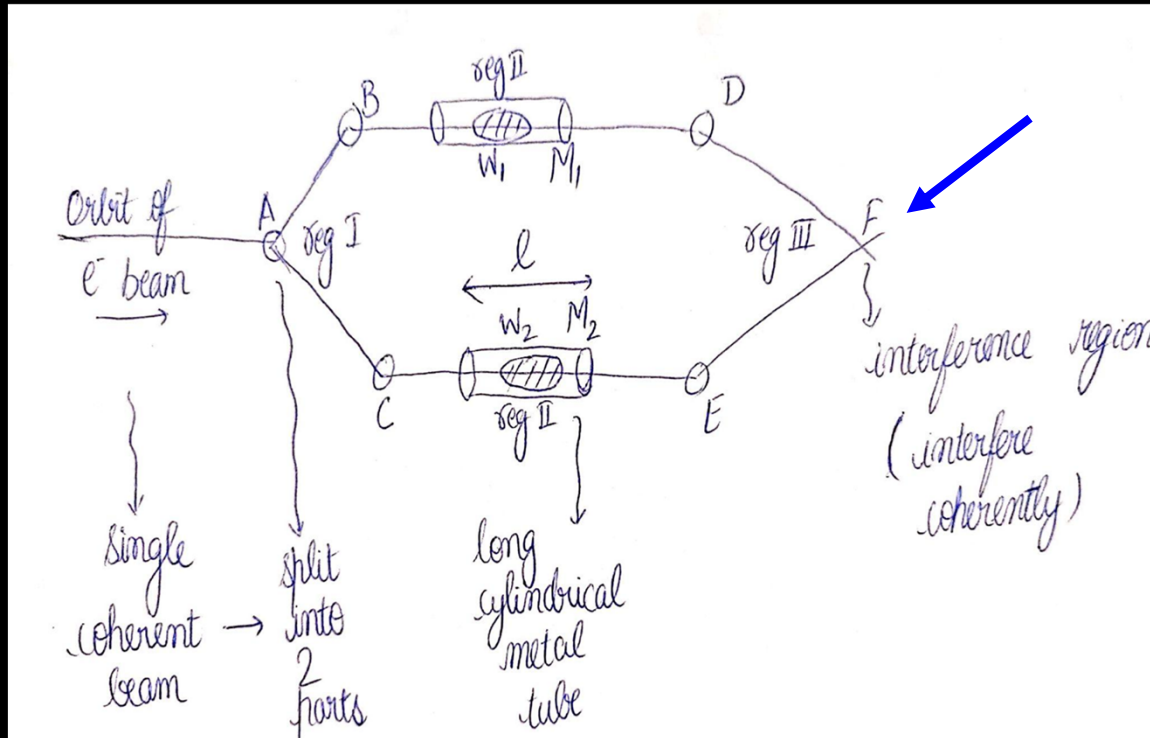 reg II
B
D
W₁ M₁
Orbit of
e⁻ beam
A
reg I
l
reg III
F
W₂ M₂
C
reg II
E
interference region
(interfere
coherently)
single
coherent →
beam
split
into
2
parts
long
cylindrical
metal
tube